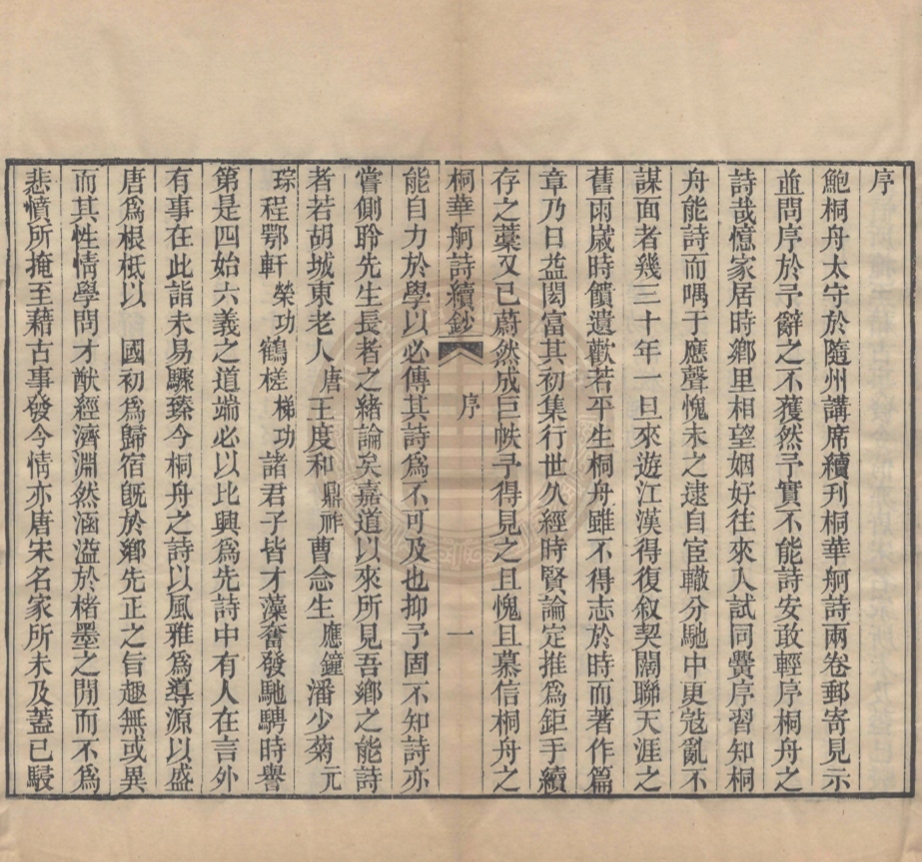 序
鮑桐舟太守於隨州講席續刊桐華舸詩兩卷郵寄見示
並問序於予辭之不獲然予實不能詩安敢輕序桐舟之
詩哉憶家居時鄉里相望姻好往來入試同黌序習知桐
舟能詩而喁于應聲愧未之逮自宦轍分馳中更寇亂不
謀面者幾三十年一旦來遊江漢得復叙契闊聯天涯之
舊雨嵗時饋遺歡若平生桐舟雖不得志於時而著作篇
章乃日益閎富其初集行世久經時賢論定推爲鉅手續
存之藁又已蔚然成巨帙予得見之且愧且慕信桐舟之
桐華舸詩續鈔 序 一
能自力於學以必傳其詩爲不可及也抑予固不知詩亦
嘗側聆先生長者之緒論矣嘉道以來所見吾鄉之能詩
者若胡城東老人唐王度和鼎祚曹念生應鐘潘少菊元
琮程鄂軒榮功鶴槎梯功諸君子皆才藻奮發馳騁時譽
第是四始六義之道端必以比興爲先詩中有人在言外
有事在此詣未易驟臻今桐舟之詩以風雅爲導源以盛
唐爲根柢以 國初爲歸宿旣於鄉先正之旨趣無或異
而其性情學問才猷經濟淵然涵溢於楮墨之閒而不爲
悲憤所掩至藉古事發今情亦唐宋名家所未及蓋已駸